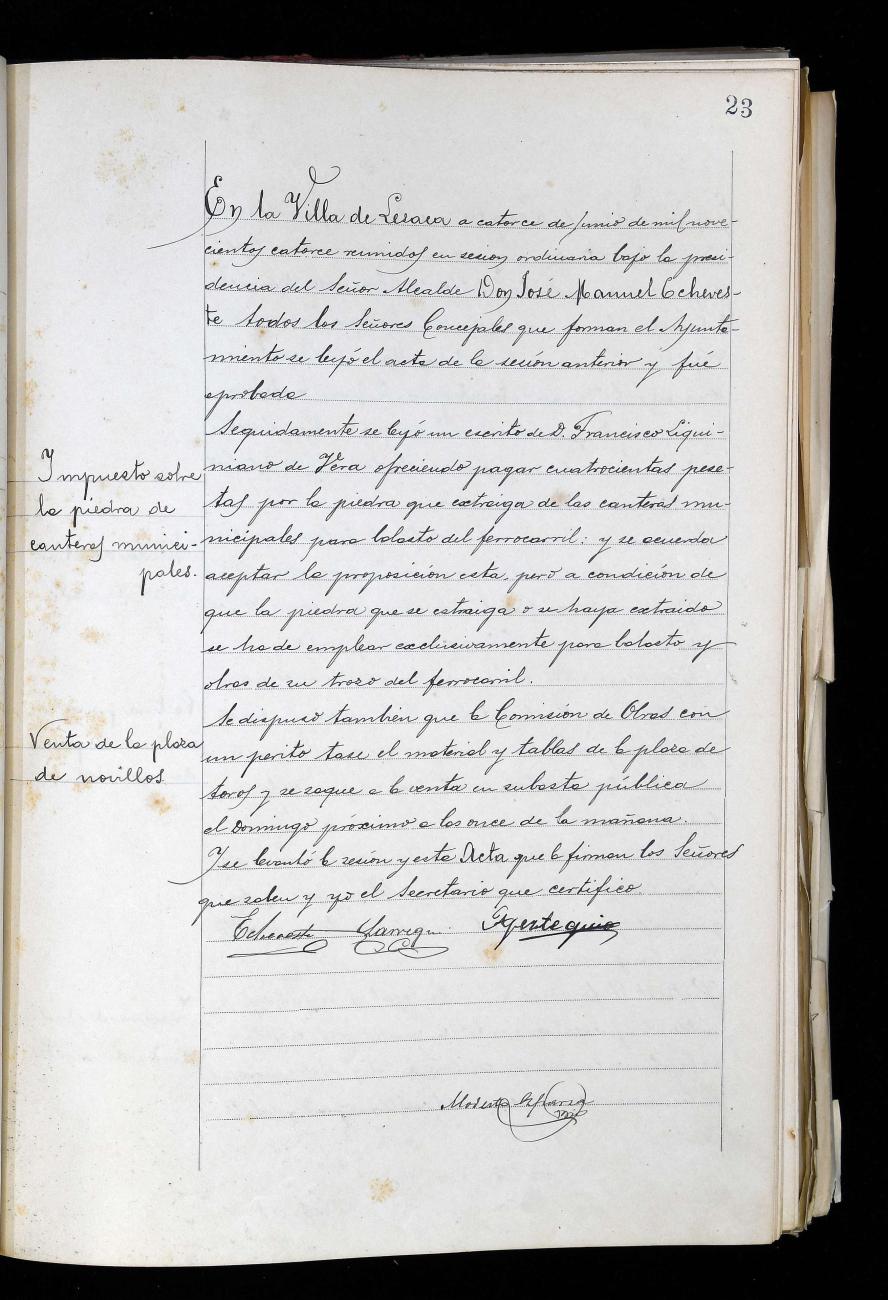 23
En la Villa de Lesaca a catorce de Junio de mil nove-
cientos catorce reunidos en sesion ordinaria bajo la presi-
dencia del Señor Alcalde Don José Manuel Echeves-
te todos los Señores Concejales que forman el Ayunta-
miento se leyó el acta de la sesión anterior y fué
aprobada
Impuesto sobre
la piedra de
canteras munici-
pales.
Seguidamente se leyó un escrito de D. Francisco Liqui-
niano de Vera ofreciendo pagar cuatrocientas pese-
tas por la piedra que extraiga de las canteras mu-
nicipales para balasto del ferrocarril: y se acuerda
aceptar la proposición esta, pero a condición de
que la piedra que se estraiga o se haya extraido
se ha de emplear exclusivamente para balasto y
obras de su trozo del ferrocarril.
Venta de la plaza
de novillos
Se dispuso también que la Comisión de Obras con
un perito tase el material y tablas de la plaza de
toros y se saque a la venta en subasta pública
el Domingo próximo a las once de la mañana.
Y se levantó la sesión y esta Acta que la firman los Señores
que saben y yo el Secretario que certifico.
Echeveste Larregui
Modesto